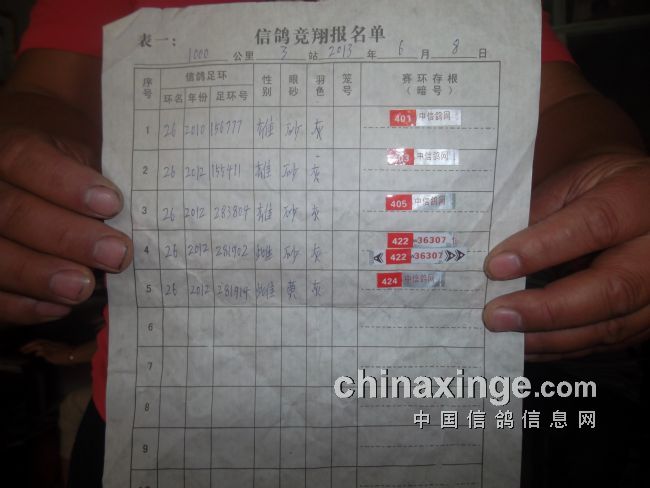 信鸽竞翔报名单
表一：
1000 公里 3 站 2013 年 6 月 8 日
序号 信鸽足环 性别 眼砂 羽色 笼号 赛环存根（暗号）
环名 年份 足环号
1 26 2010 156777 雄 砂 灰 401 中信鸽网
2 26 2012 155411 雄 砂 灰 中信鸽网
3 26 2012 283804 雄 砂 灰 405 中信鸽网
4 26 2012 281902 雌 砂 灰 422 36307
422 36307
5 26 2012 281914 雌 黄 灰 424 中信鸽网
6
7
8
9
chinaxinge.com
中国信鸽信息网